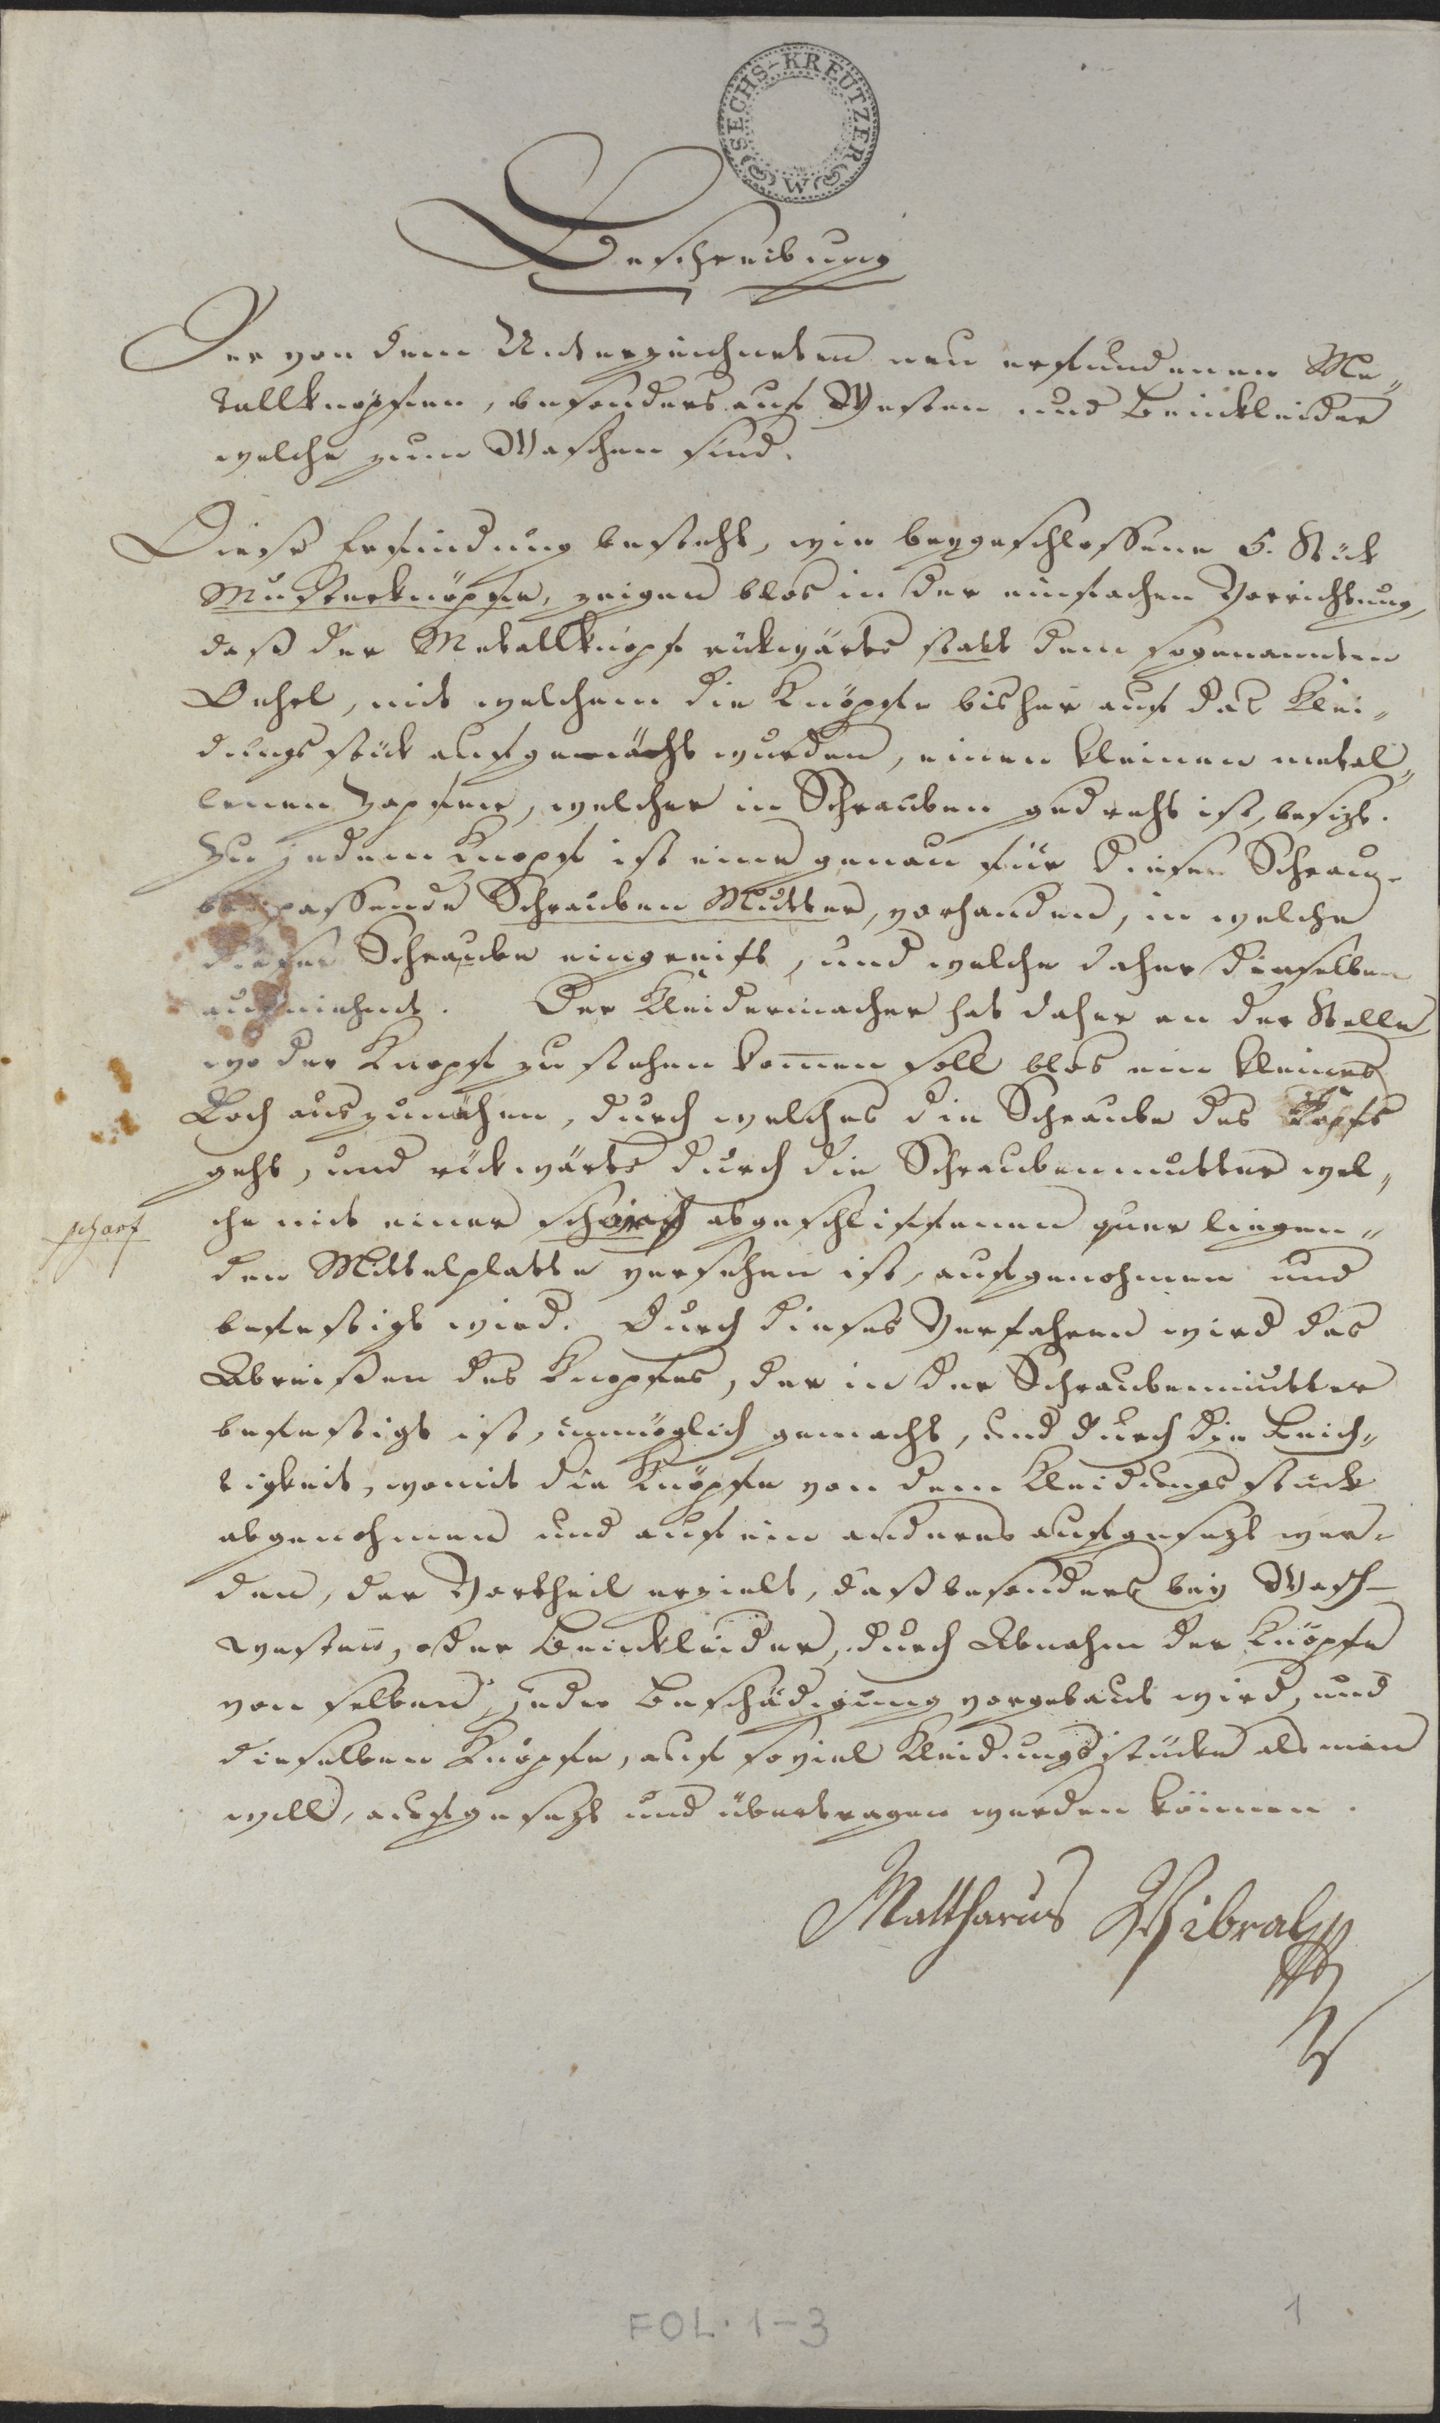 SECHS-KREUTZER
W
Beschreibung
Der von dem Unterzeichneten neu erfundenen Me„
tallknöpfen, besonders auf Westen und Beinkleider
welche zum Waschen sind.
Diese Erfindung besteht, wie beygeschlossene 6. Stück
Musterknöpfe, zeigen blos in der einfachen Vorrichtung,
daß der Metallknopf rückwärts statt dem sogenannten
Oehrl, mit welchem die Knöpfe bisher auf das Klei„
dungsstück aufgenäht wurden, einen kleinen metal„
lenen Zapfen, welcher in Schrauben gedreht ist, besizt.
Zu jedem Knopf ist eine genau für diesen Schrau-
ben passende Schrauben Mutter, vorhanden, in welche
dieser Schraube eingreift, und welche daher dieselben
aufniehmt. Der Kleidermacher hat daher an der Stelle
wo der Knopf zu stehen kom̅en soll blos ein kleines
Loch auszunähen, durch welches die Schraube des Kopfs
geht, und rückwärts durch die Schraubenmutter wel„
scharf
che mit einer abgeschliffenen quer liegen„
den Mittelplatte versehen ist, aufgenohmen und
befestigt wird. Durch dieses Verfahren wird das
Abreißen des Knopfes, der in der Schraubenmutter
befestigt ist, unmöglich gemacht, und durch die Leich„
tigkeit, womit die Knöpfe von dem Kleidungsstück
abgenohmen und auf ein anderes aufgesezt wer-
den, der Vortheil erzielt, daß besonders bey Wasch-
westen, oder Beinkleider, durch Abnahm der Knöpfe
von selben, jeder Beschädigung vorgebaut wird, und
dieselben Knöpfe, auf soviel Kleidungsstücke als man
will, aufgesezt und übertragen werden können.
Matthaeus Wibral
FOL. 1-3
1